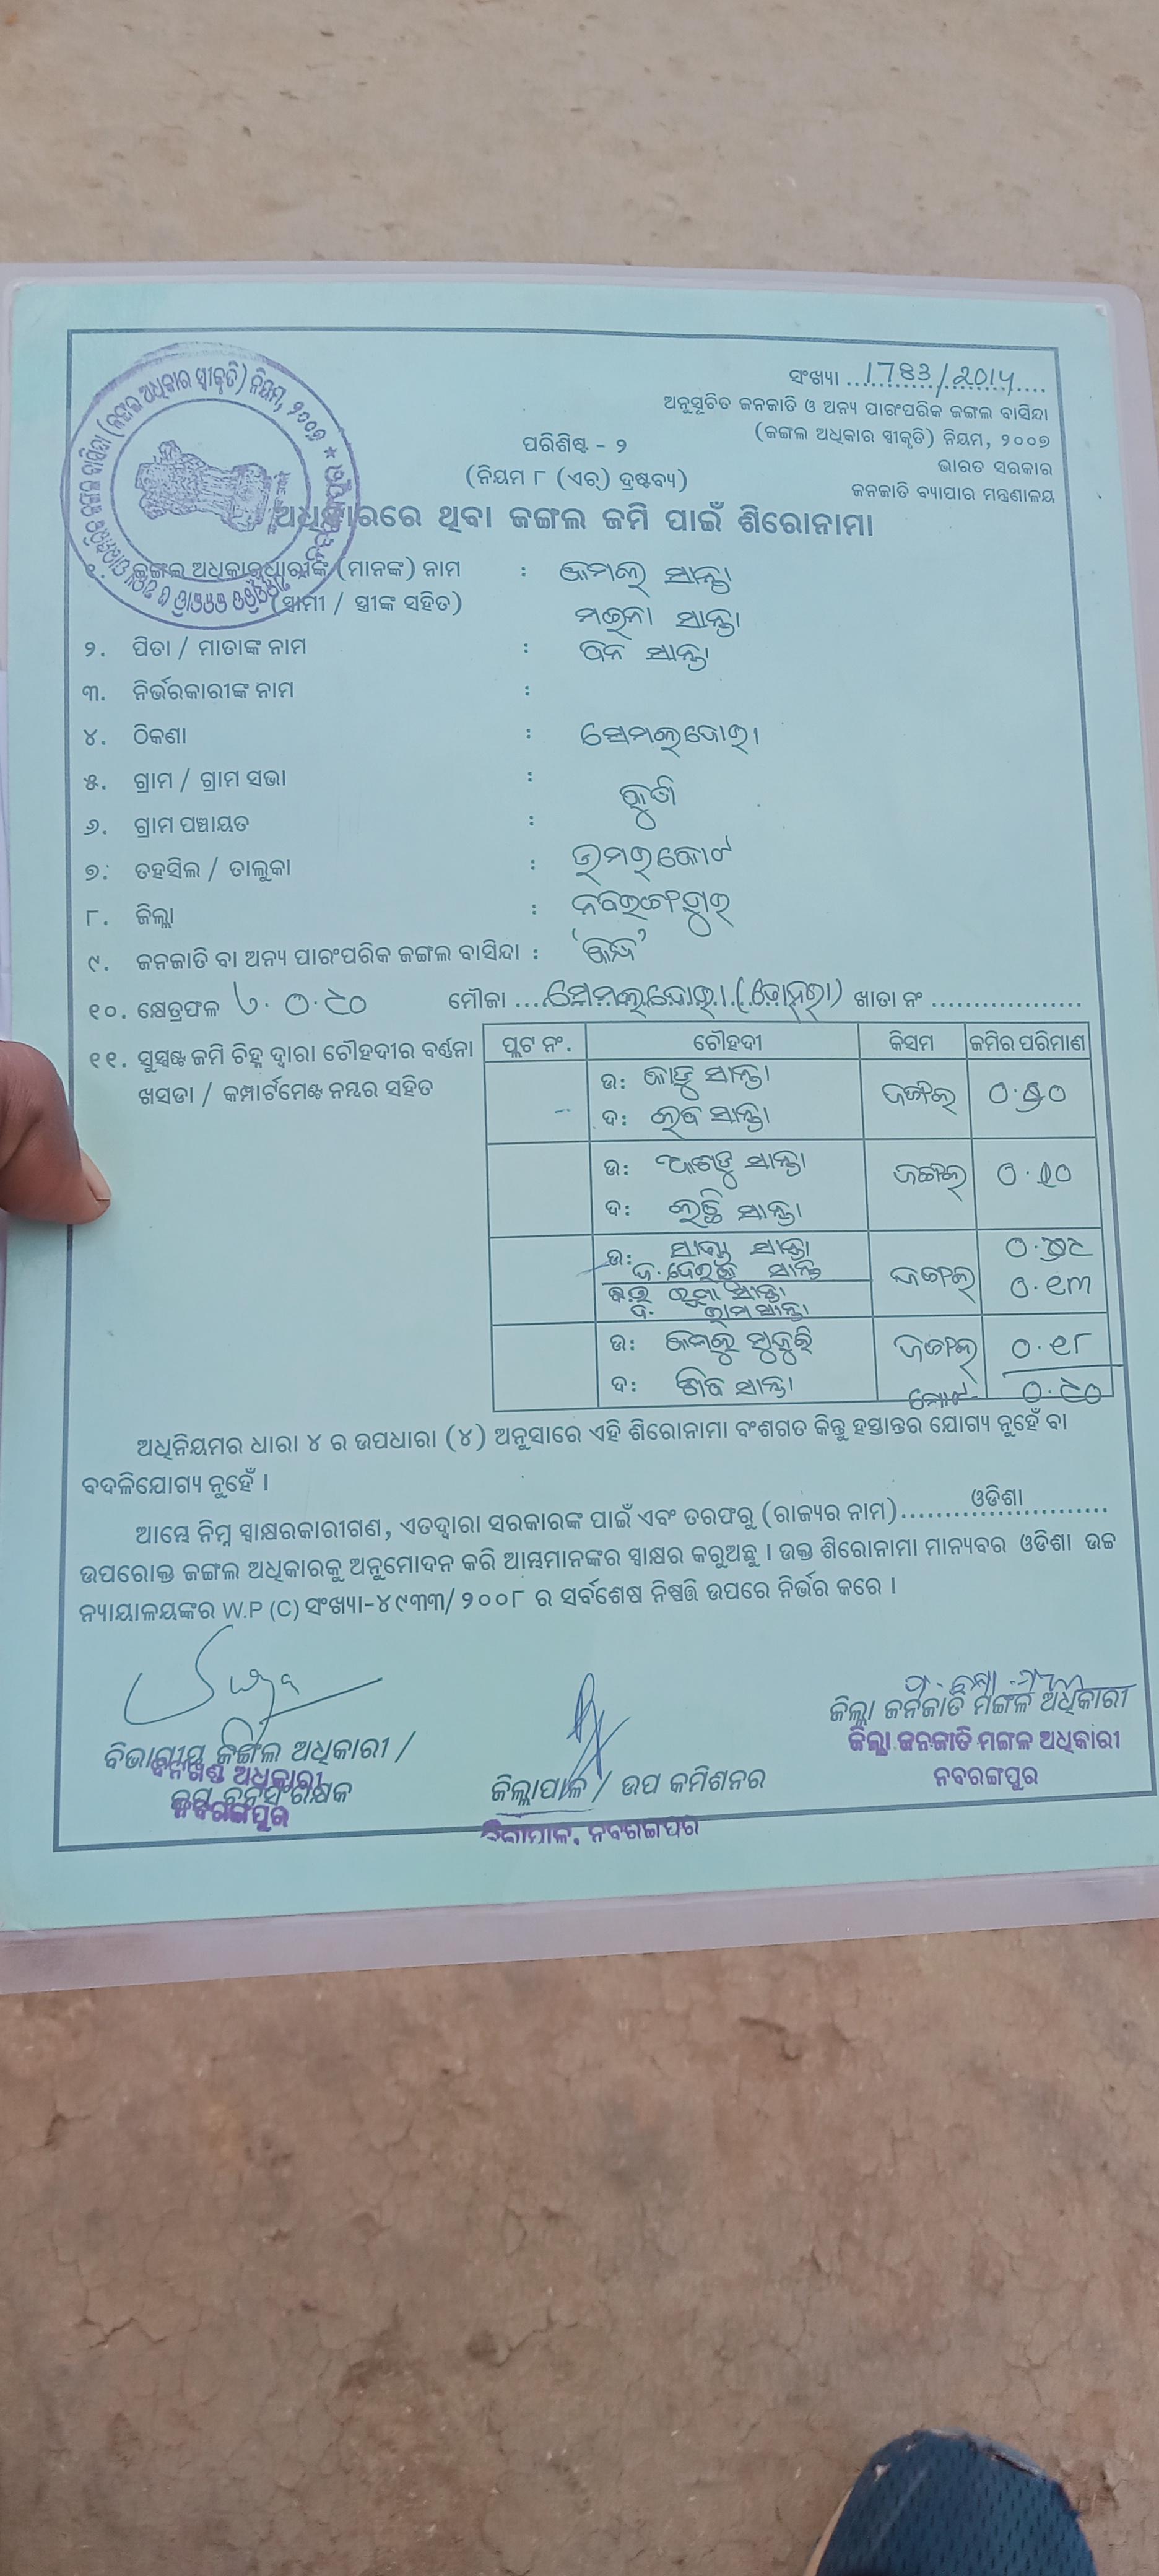 ସଂଖ୍ୟା ...1783/2014...
ଅନୁସୂଚିତ ଜନଜାତି ଓ ଅନ୍ୟ ପାରଂପରିକ ଜଙ୍ଗଲ ବାସିନ୍ଦା
(ଜଙ୍ଗଲ ଅଧିକାର ସ୍ୱୀକୃତି) ନିୟମ, ୨୦୦୭
ଭାରତ ସରକାର
ଜନଜାତି ବ୍ୟାପାର ମନ୍ତ୍ରଣାଳୟ
ପରିଶିଷ୍ଟ - ୨
(ନିୟମ ୮ (ଏଚ୍) ଦ୍ରଷ୍ଟବ୍ୟ)
ଅଧିକାରରେ ଥିବା ଜଙ୍ଗଲ ଜମି ପାଇଁ ଶିରୋନାମା
୧. ଜଙ୍ଗଲ ଅଧିକାରଧାରୀଙ୍କ (ମାନଙ୍କ) ନାମ : କମଲ ସାନ୍ତା
(ସ୍ୱାମୀ / ସ୍ତ୍ରୀଙ୍କ ସହିତ) ମଇନା ସାନ୍ତା
୨. ପିତା / ମାତାଙ୍କ ନାମ : ସାନ୍ତା
୩. ନିର୍ଭରକାରୀଙ୍କ ନାମ :
୪. ଠିକଣା : ସେମଲଦୋରା
୫. ଗ୍ରାମ / ଗ୍ରାମ ସଭା :
୬. ଗ୍ରାମ ପଞ୍ଚାୟତ :
୭. ତହସିଲ / ତାଲୁକା : ଉମରକୋଟ
୮. ଜିଲ୍ଲା : ନବରଙ୍ଗପୁର
୯. ଜନଜାତି ବା ଅନ୍ୟ ପାରଂପରିକ ଜଙ୍ଗଲ ବାସିନ୍ଦା :
୧୦. କ୍ଷେତ୍ରଫଳ ୦.୯୦ ମୌଜା ...ସେମଲଦୋରା... ଖାତା ନଂ ..................
୧୧. ସୁସ୍ପଷ୍ଟ ଜମି ଚିହ୍ନ ଦ୍ୱାରା ଚୌହଦୀର ବର୍ଣ୍ଣନା
ଖସଡା / କମ୍ପାର୍ଟମେଣ୍ଟ ନମ୍ବର ସହିତ
ପ୍ଲଟ ନଂ. ଚୌହଦୀ କିସମ ଜମିର ପରିମାଣ
ଉ: ସାନ୍ତା ଜଙ୍ଗଲ
ଦ: ସାନ୍ତା
ଉ: ସାନ୍ତା ଜଙ୍ଗଲ ୦.୧୦
ଦ: ଲଚ୍ଛି ସାନ୍ତା
ଉ: ସାନ୍ତା ଜଙ୍ଗଲ
ଦ. ସାନ୍ତା ୦.୧୩
ଦ. ରାମ ସାନ୍ତା
ଉ: ଜଙ୍ଗଲ ୦.୧୮
ଦ: ସାନ୍ତା ମୋଟ ୦.୯୦
ଅଧିନିୟମର ଧାରା ୪ ର ଉପଧାରା (୪) ଅନୁସାରେ ଏହି ଶିରୋନାମା ବଂଶଗତ କିନ୍ତୁ ହସ୍ତାନ୍ତର ଯୋଗ୍ୟ ନୁହେଁ ବା
ବଦଳିଯୋଗ୍ୟ ନୁହେଁ ।
ଆମ୍ଭେ ନିମ୍ନ ସ୍ୱାକ୍ଷରକାରୀଗଣ, ଏତଦ୍ୱାରା ସରକାରଙ୍କ ପାଇଁ ଏବଂ ତରଫରୁ (ରାଜ୍ୟର ନାମ)........ଓଡିଶା..........
ଉପରୋକ୍ତ ଜଙ୍ଗଲ ଅଧିକାରକୁ ଅନୁମୋଦନ କରି ଆମ୍ଭମାନଙ୍କର ସ୍ୱାକ୍ଷର କରୁଅଛୁ । ଉକ୍ତ ଶିରୋନାମା ମାନ୍ୟବର ଓଡିଶା ଉଚ୍ଚ
ନ୍ୟାୟାଳୟଙ୍କର W.P (C) ସଂଖ୍ୟା-୪୯୩୩/ ୨୦୦୮ ର ସର୍ବଶେଷ ନିଷ୍ପତ୍ତି ଉପରେ ନିର୍ଭର କରେ ।
ଜିଲ୍ଲା ଜନଜାତି ମଙ୍ଗଳ ଅଧିକାରୀ
ଜିଲ୍ଲା ଜନଜାତି ମଙ୍ଗଳ ଅଧିକାରୀ
ନବରଙ୍ଗପୁର
ବିଭାଗୀୟ ଜଙ୍ଗଲ ଅଧିକାରୀ /
ବନଖଣ୍ଡ ଅଧିକାରୀ
ଉପ ବନସଂରକ୍ଷକ
ନବରଙ୍ଗପୁର
ଜିଲ୍ଲାପାଳ / ଉପ କମିଶନର
ଜିଲ୍ଲାପାଳ, ନବରଙ୍ଗପୁର